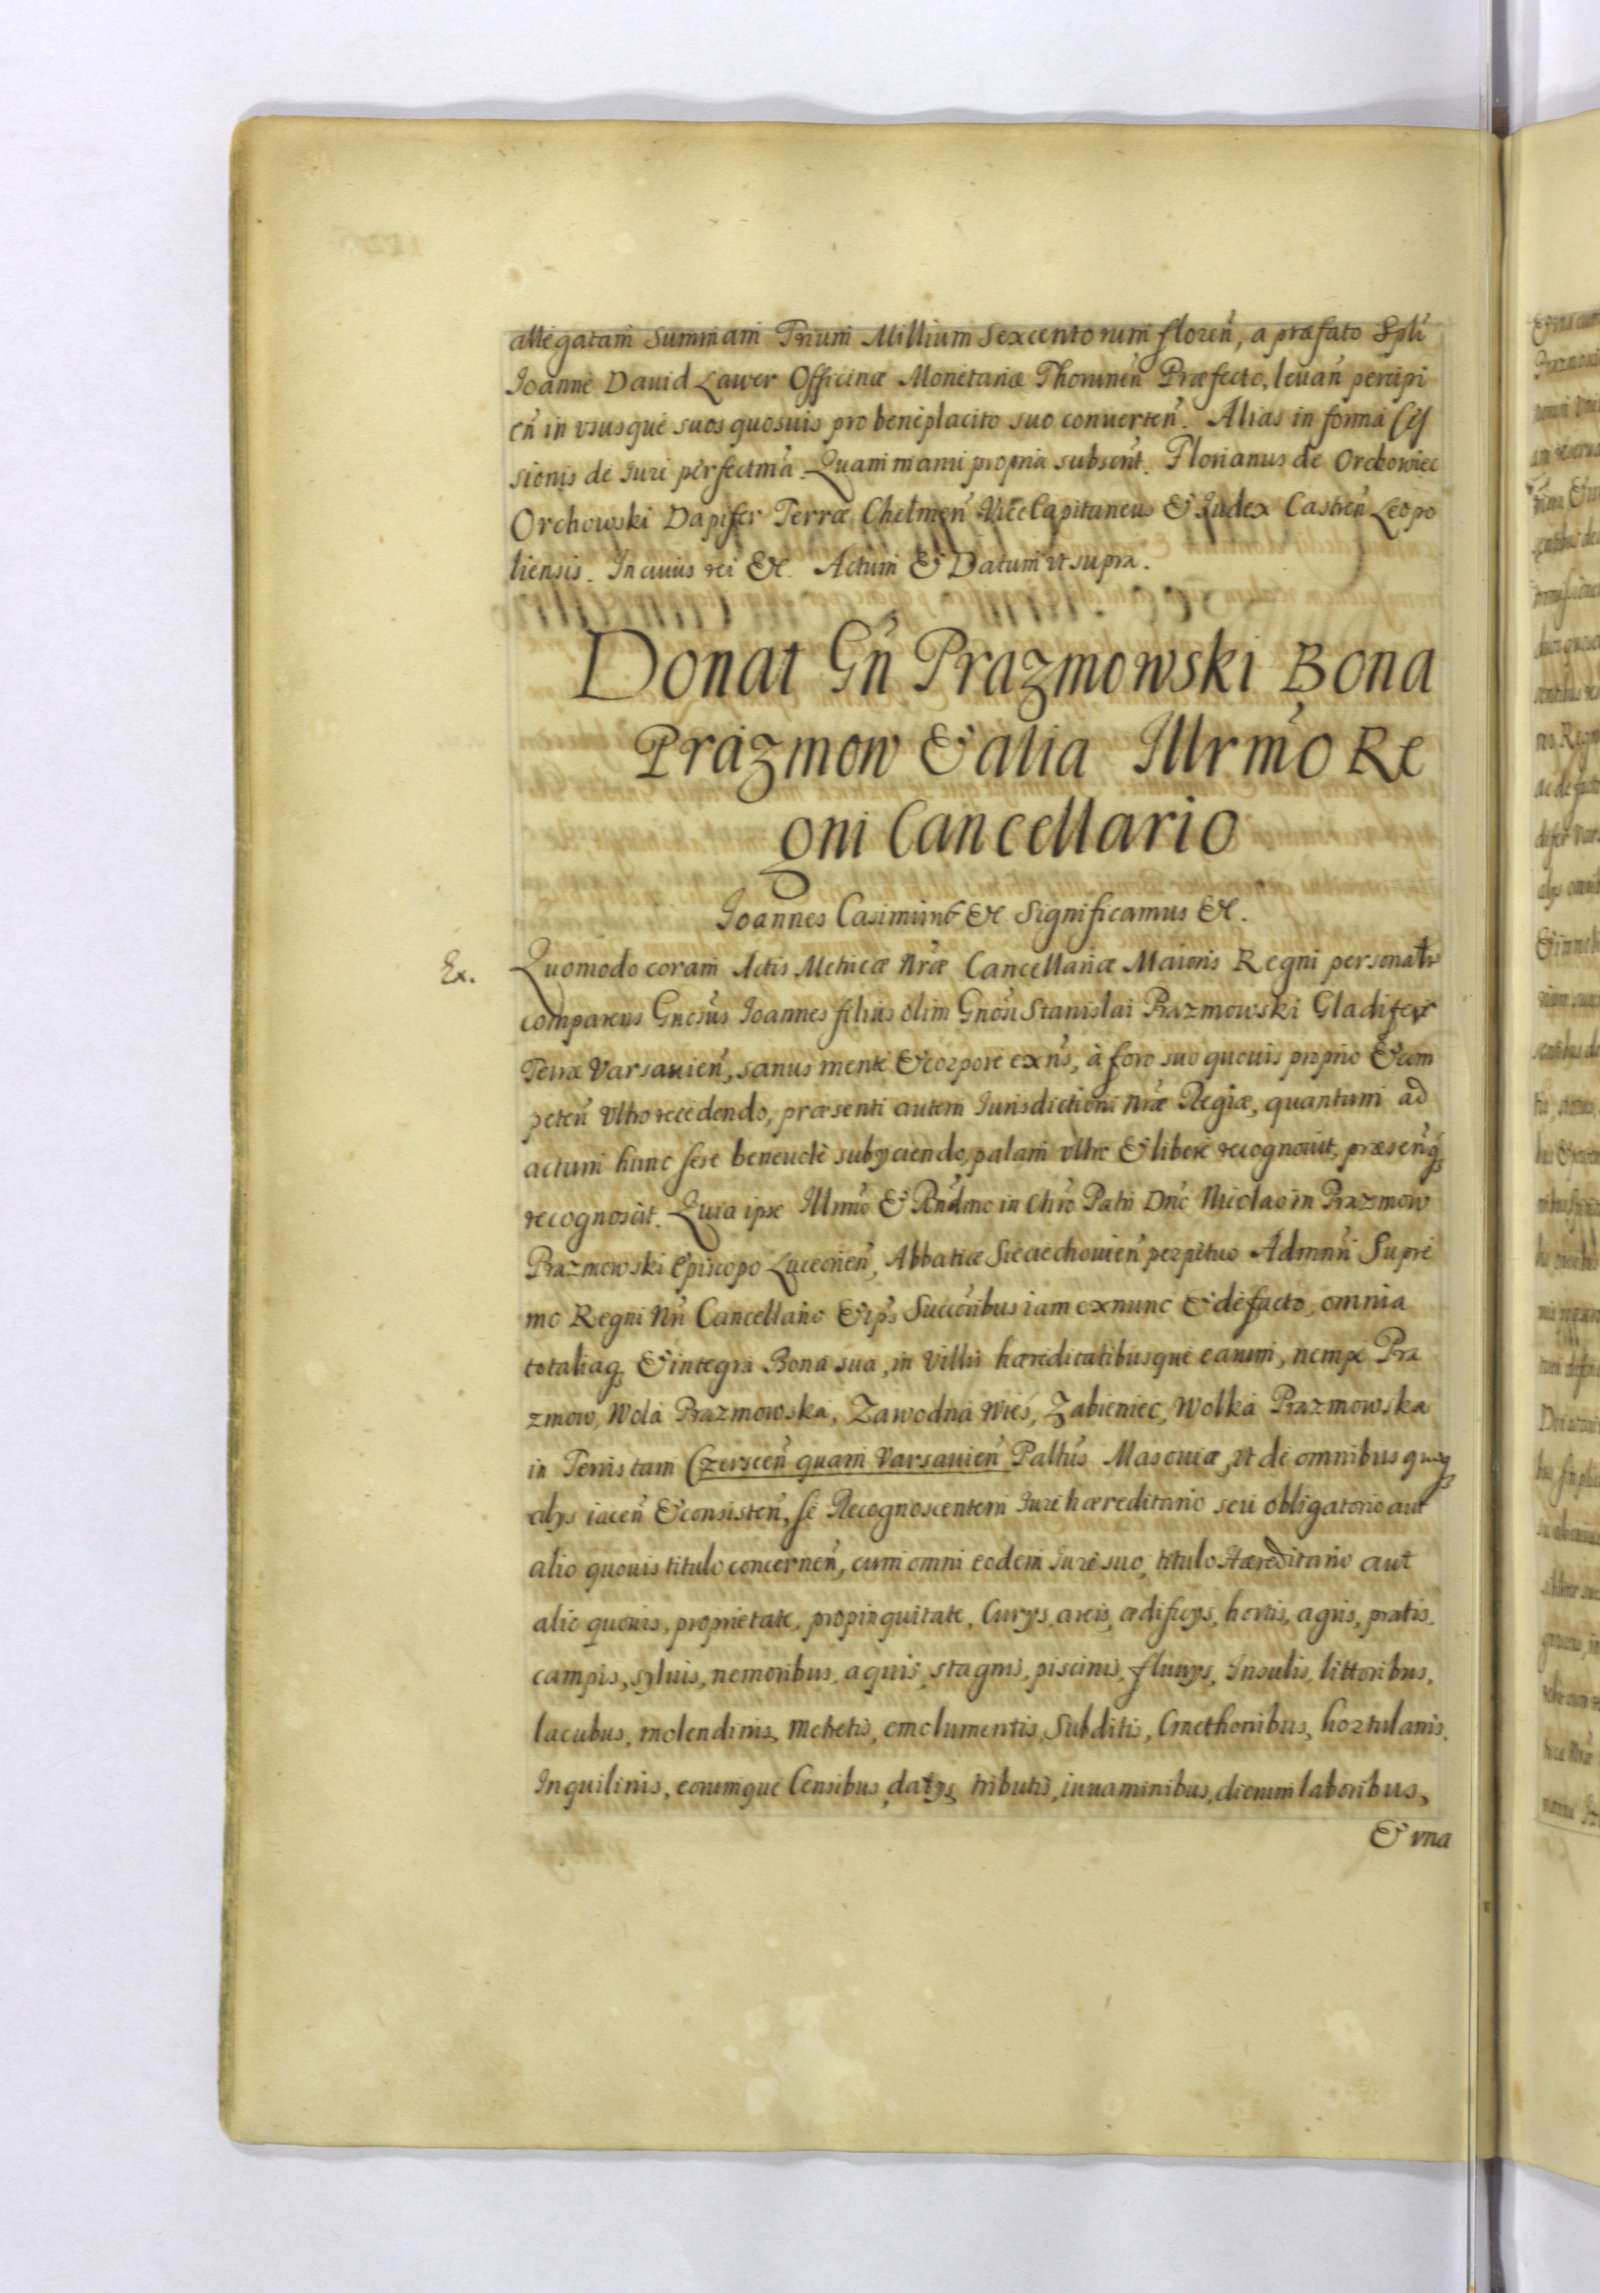 allegatam Summam Trium Millium Sexcentorum floreń, a præfato Spli
Ioanne Dauid Lawer Officinæ Monetariæ Thorunēn Præfecto, leuań percipi
eń in vsusque suos quosuis pro beneplacito suo conuerteń. Alias in forma Ces
sionis de Iuri perfectma. Quam manu propria subscrit. Florianus de Orchowiec
Orchowski Dapifer Terræ Chelmeń ViceCapitaneus & Iudex Castreń Leopo
liensis. In cuius rei &c. Actum & Datum vt supra.
Donat Gń Prazmowski Bona
Prazmow & alia Illrmo Re
gni Cancellario
Ioannes Casimirus &c Significamus &c.
Ex. Quomodo coram Actis Metricæ Nræ Cancellariæ Maioris Regni personalr
comparens Gnosus Ioannes filius olim Gnosi Stanislai Prazmowski Gladiferi
Terræ Varsauień, sanus mente & corpore exns, à foro suo quouis proprio & com
peteń vltro recedendo, præsenti autem Iurisdictioni Nræ Regiæ, quantum ad
actum hunc sese beneuole subyciendo, palam vltro & libere recognouit, præsenq
recognoscit. Quia ipse Illmo & Rndmo in Chro Patri Dno Nicolao in Prazmow
Prazmowski Episcopo Luceorień, Abbatiæ Sieciechouień perpetuo Admnri Supre
mo Regni Nri Cancellario & ips Succoribus iam exnunc & defacto, omnia
totaliaq & integra Bona sua, in Villis hæreditatibusque earum, nempe Pra
zmow, Wola Prazmowska, Zawodna Wies, Zabieniec, Wolka Prazmowska
in Terris tam Czersceń quam Varsauień Paltus Masouiæ, vt de omnibus quibq
alys iaceń & consisteń, se Recognoscentem Iure hæreditario seu obligatorio aut
alio quouis titulo concerneń, cum omni eodem Iure suo, titulo Hæreditario aut
alio quouis, proprietate, propinquitate, Curys, areis, ædificys, hortis, agris, pratis,
campis, syluis, nemoribus, aquis, stagnis, piscinis, fluuys, Insulis, littoribus,
lacubus, molendinis, Metretis, emolumentis, Subditis, Cmethonibus, hortulanis,
Inquilinis, eorumque Censibus, datys, tributis, iuuaminibus, dierum laboribus,
& vna